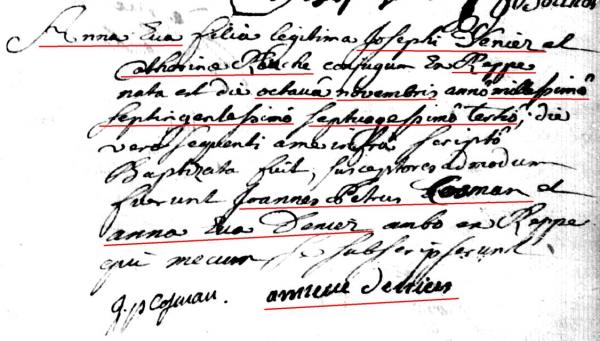 Anna Eva filia legitima Josephi Denier et
Catharinæ Reiche conjugum en Reppe
nata est die octavâ novembris annô millessimô
septingentessimô septuagessimô tertiô, die
vero sequenti a me infrâ scriptô
Baptizata fuit, susceptores admodum
fuerunt Joannes Petrus Cosman et
anna Eva Denier ambo en Reppe
qui mecum se subscripserunt
J. p Cosman. denier